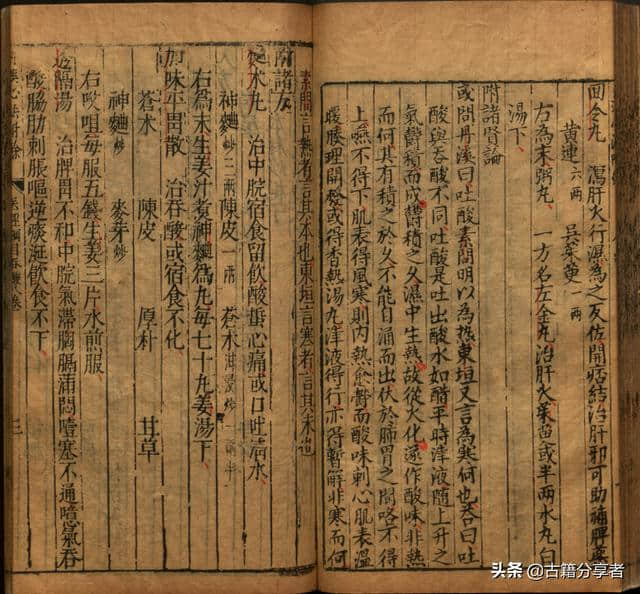 回令丸 瀉肝火行濕為之反佐開痞結治肝邪可助補脾藥
黃連 六兩 吳茱萸 一兩
右為末粥丸 一方名左金丸治肝火茱萸或半兩水丸白
湯下
附諸賢論
或問丹溪曰吐酸素問明以為熱東垣又言為寒何也荅曰吐
酸與吞酸不同吐酸是吐出酸水如醋平時津液隨上升之
氣鬱積而成鬱積之久濕中生熱故從火化遂作酸味非熱
而何其有積之於久不能自涌而出伏於肺胃之間咯不得
上嚥不得下肌表得風寒則內熱愈鬱而酸味刺心肌表溫
暖腠理開發或得香熱湯丸津液得行亦得暫解非寒而何
素問言熱者言其本也東垣言寒者言其末也
附諸方
术丸 治中脘宿食留飲酸蜇心痛或口吐清水
神麯炒三兩 陳皮一兩 蒼术泔浸炒一兩半
右為末生姜汁煮神麯為丸每七十丸姜湯下
加味平胃散 治吞酸或宿食不化
蒼术 陳皮 厚朴 甘草
神麯炒 麥芽炒
右㕮咀每服五錢生姜三片水煎服
透膈湯 治脾胃不和中脘氣滯胸膈滿悶噎塞不通噫氣吞
酸脇肋刺脹嘔逆痰涎飲食不下
三
头条 @古籍分享者